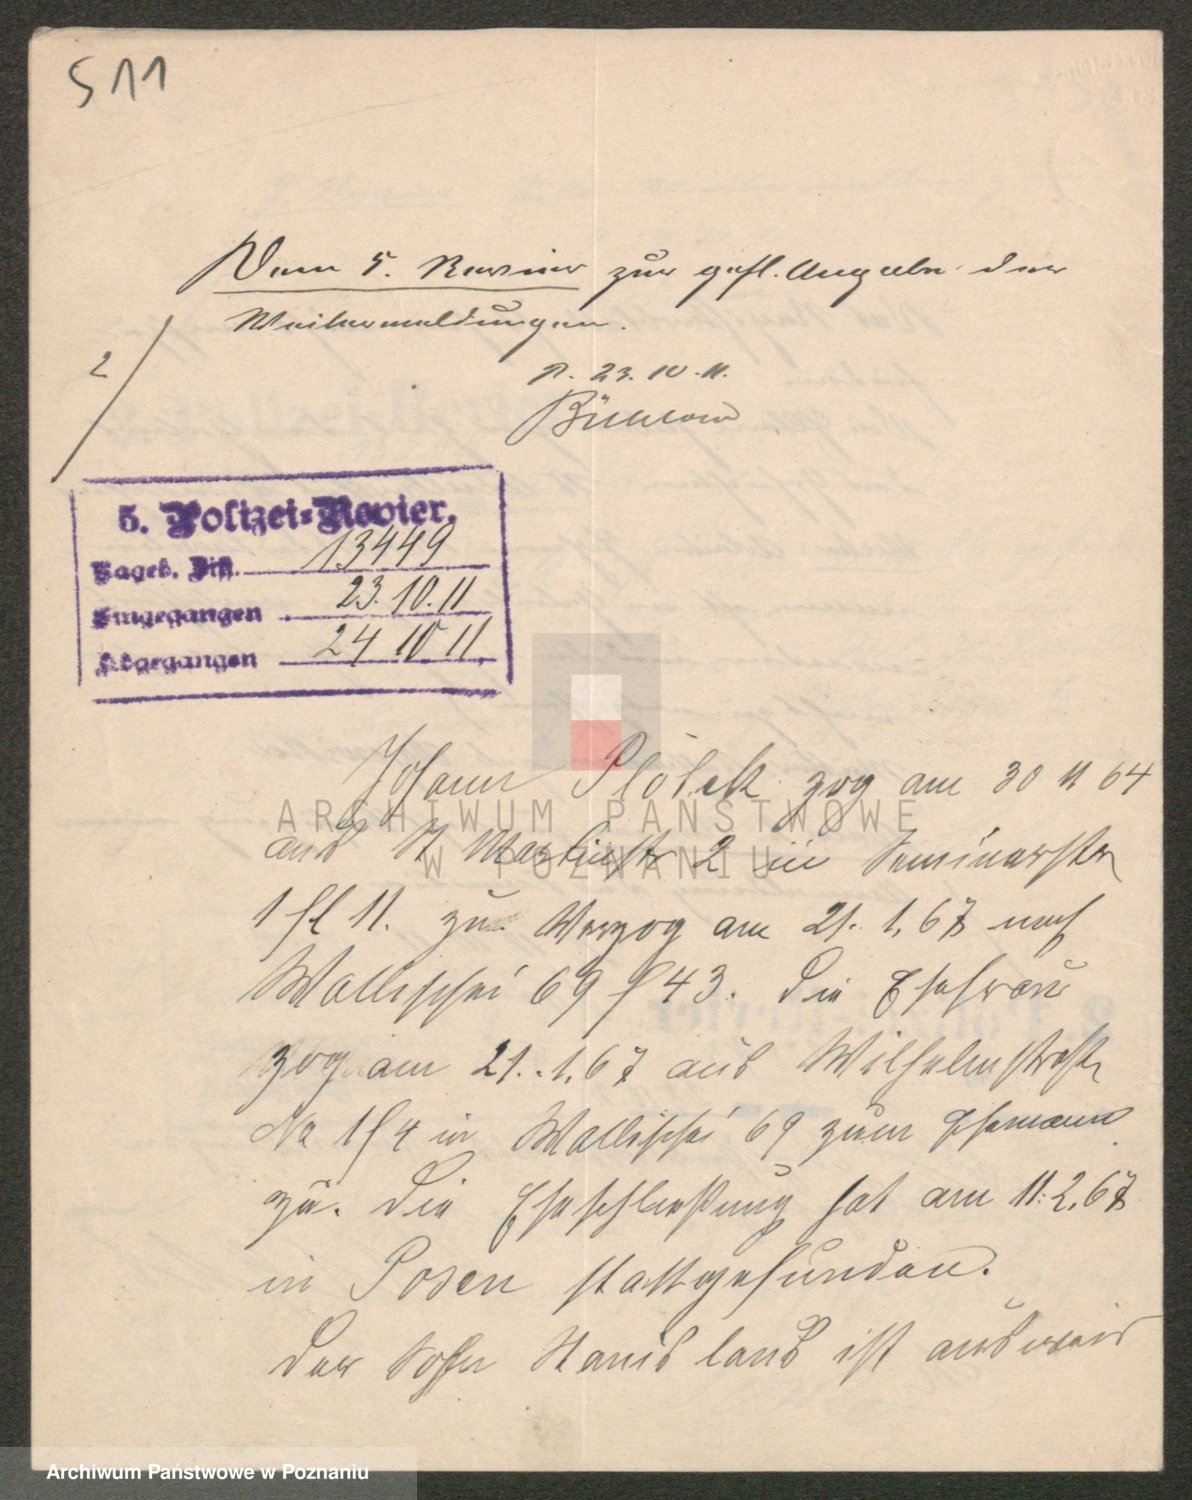 S 11
Dem 5. Revier zur gefl. Angabe der
Weitermeldungen.
2
P. 23. 10. 11.
5. Polizei-Revier.
Tageb. 13449
Eingegangen 23. 10. 11
Abgegangen 24 10 11
Johann zog am 30 11 64
aus St Martinstr 2 in Seminarstr
1 11. zu. Verzog am 21. 1. 67 nach
Wallischei 69 / 43. Die Ehefrau
zog am 21. 1. 67 aus Wilhelmstraße
No 1 / 4 in Wallischei 69 zum Ehemann
zu. Die Eheschließung hat am 11. 2. 67
in Posen stattgefunden.
Der Sohn Stanislaus ist ausweis
ARCHIWUM PAŃSTWOWE
W POZNANIU
Archiwum Państwowe w Poznaniu